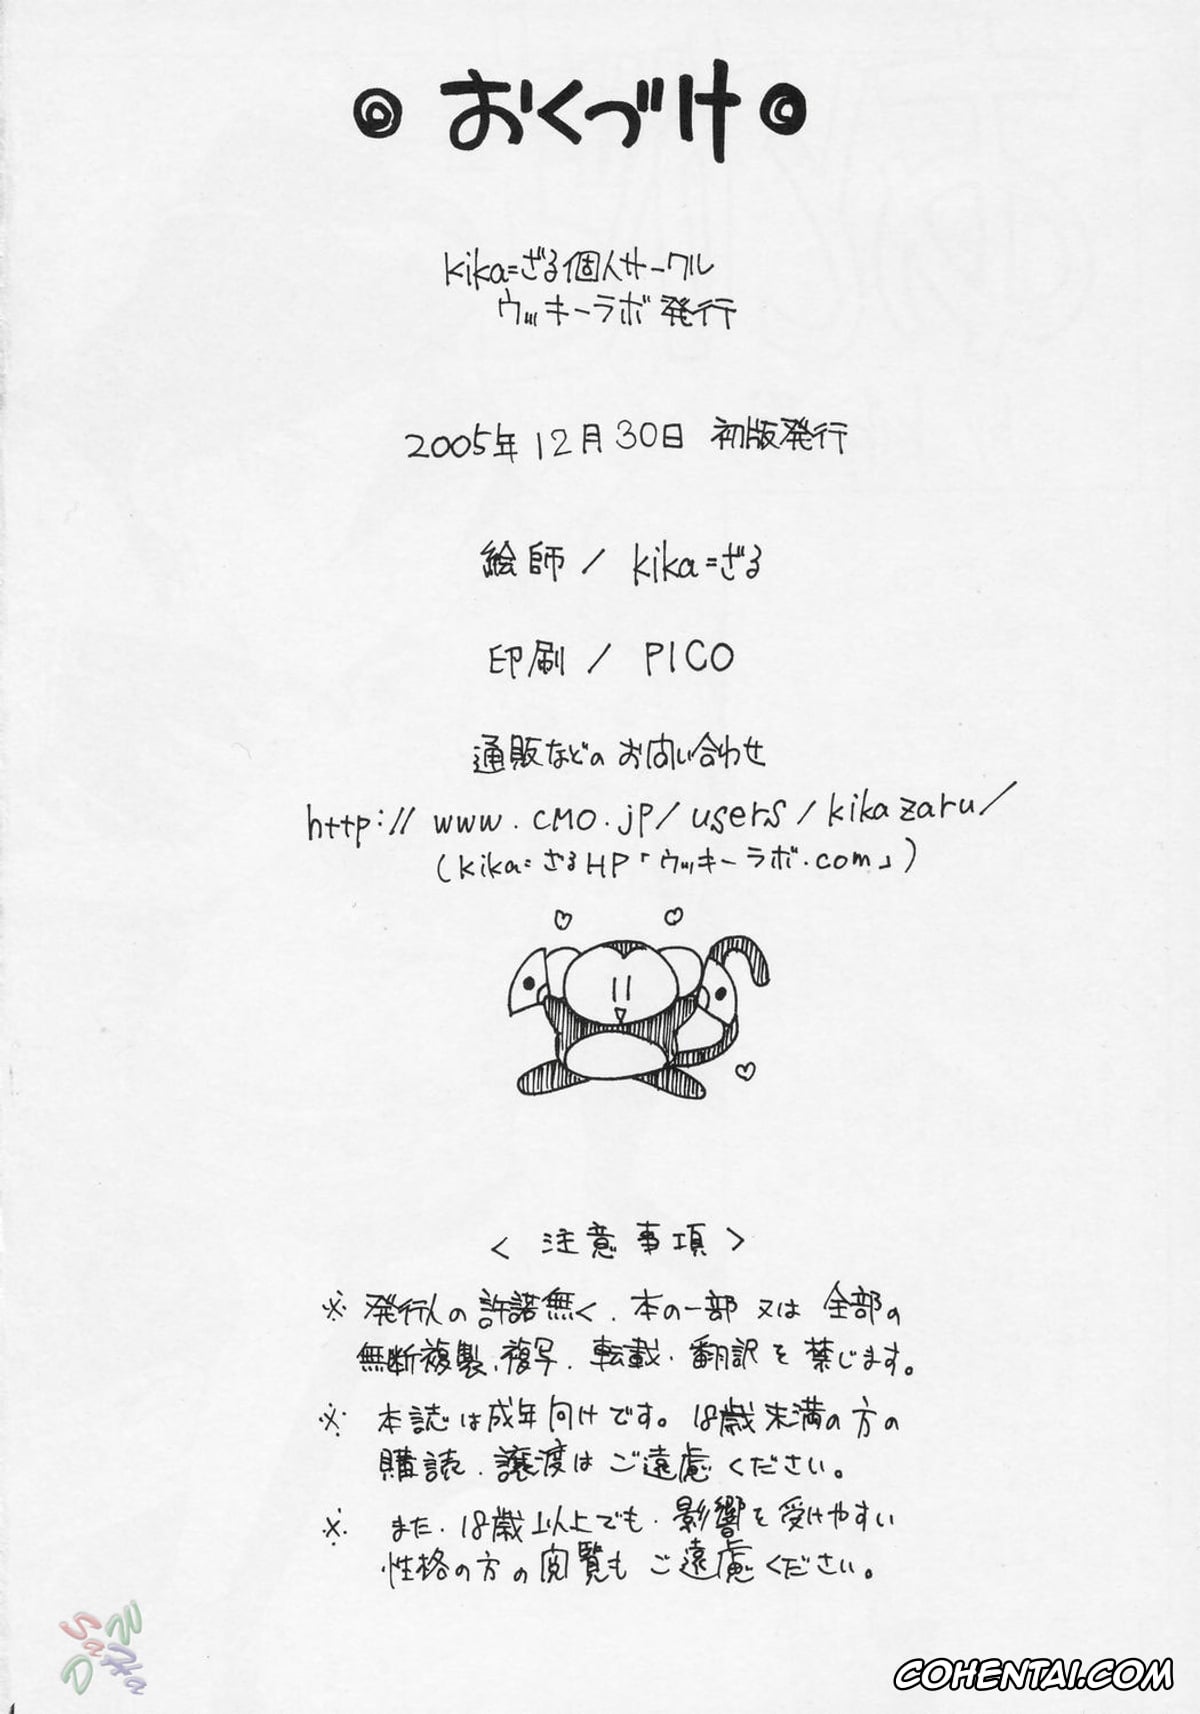 ◎ おくづけ ◎
kika=ざる個人サークル
ウッキーラボ発行
2005年12月30日 初版発行
絵師 / kika=ざる
印刷 / PICO
通販などのお問い合わせ
http://www.cmo.jp/users/kikazaru/
(kika=ざるHP「ウッキーラボ.com」)
< 注意事項 >
※ 発行人の許諾無く、本の一部又は全部の
無断複製、複写、転載、翻訳を禁じます。
※ 本誌は成年向けです。18歳未満の方の
購読、譲渡はご遠慮ください。
※ また、18歳以上でも、影響を受けやすい
性格の方の閲覧もご遠慮ください。
COHENTAI.COM